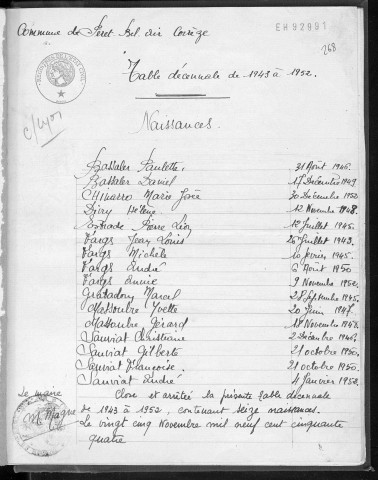 Commune de Péret Bel air Corrèze
EH92991
268
Table décennale de 1943 à 1952.
Naissances.
Bassaler Paulette. 31 Août 1946.
Bassaler Daniel 17 Décembre 1949
CHIMARRO Marie José 30 Décembre 1950
Hélène 12 Novembre 1948.
Estrade Pierre Léon 12 Juillet 1945.
Fargs Jean Louis 26 Juillet 1943.
Fargs Michèle 10 février 1945.
Fargs André 6 Août 1950.
Fargs Annie 9 Novembre 1950.
Marcel 28 Septembre 1945.
Massoubre Yvette 20 Juin 1947.
Massoubre Gérard 18 Novembre 1946.
Sauviat Christiane 2 Décembre 1946.
Sauviat Gilberte 21 octobre 1950.
Sauviat Françoise. 21 octobre 1950.
Sauviat André 4 Janvier 1952.
Le maire
Close et arrêtée la présente table décennale
de 1943 à 1952, contenant seize naissances.
Le vingt cinq Novembre mil neuf cent cinquante
quatre